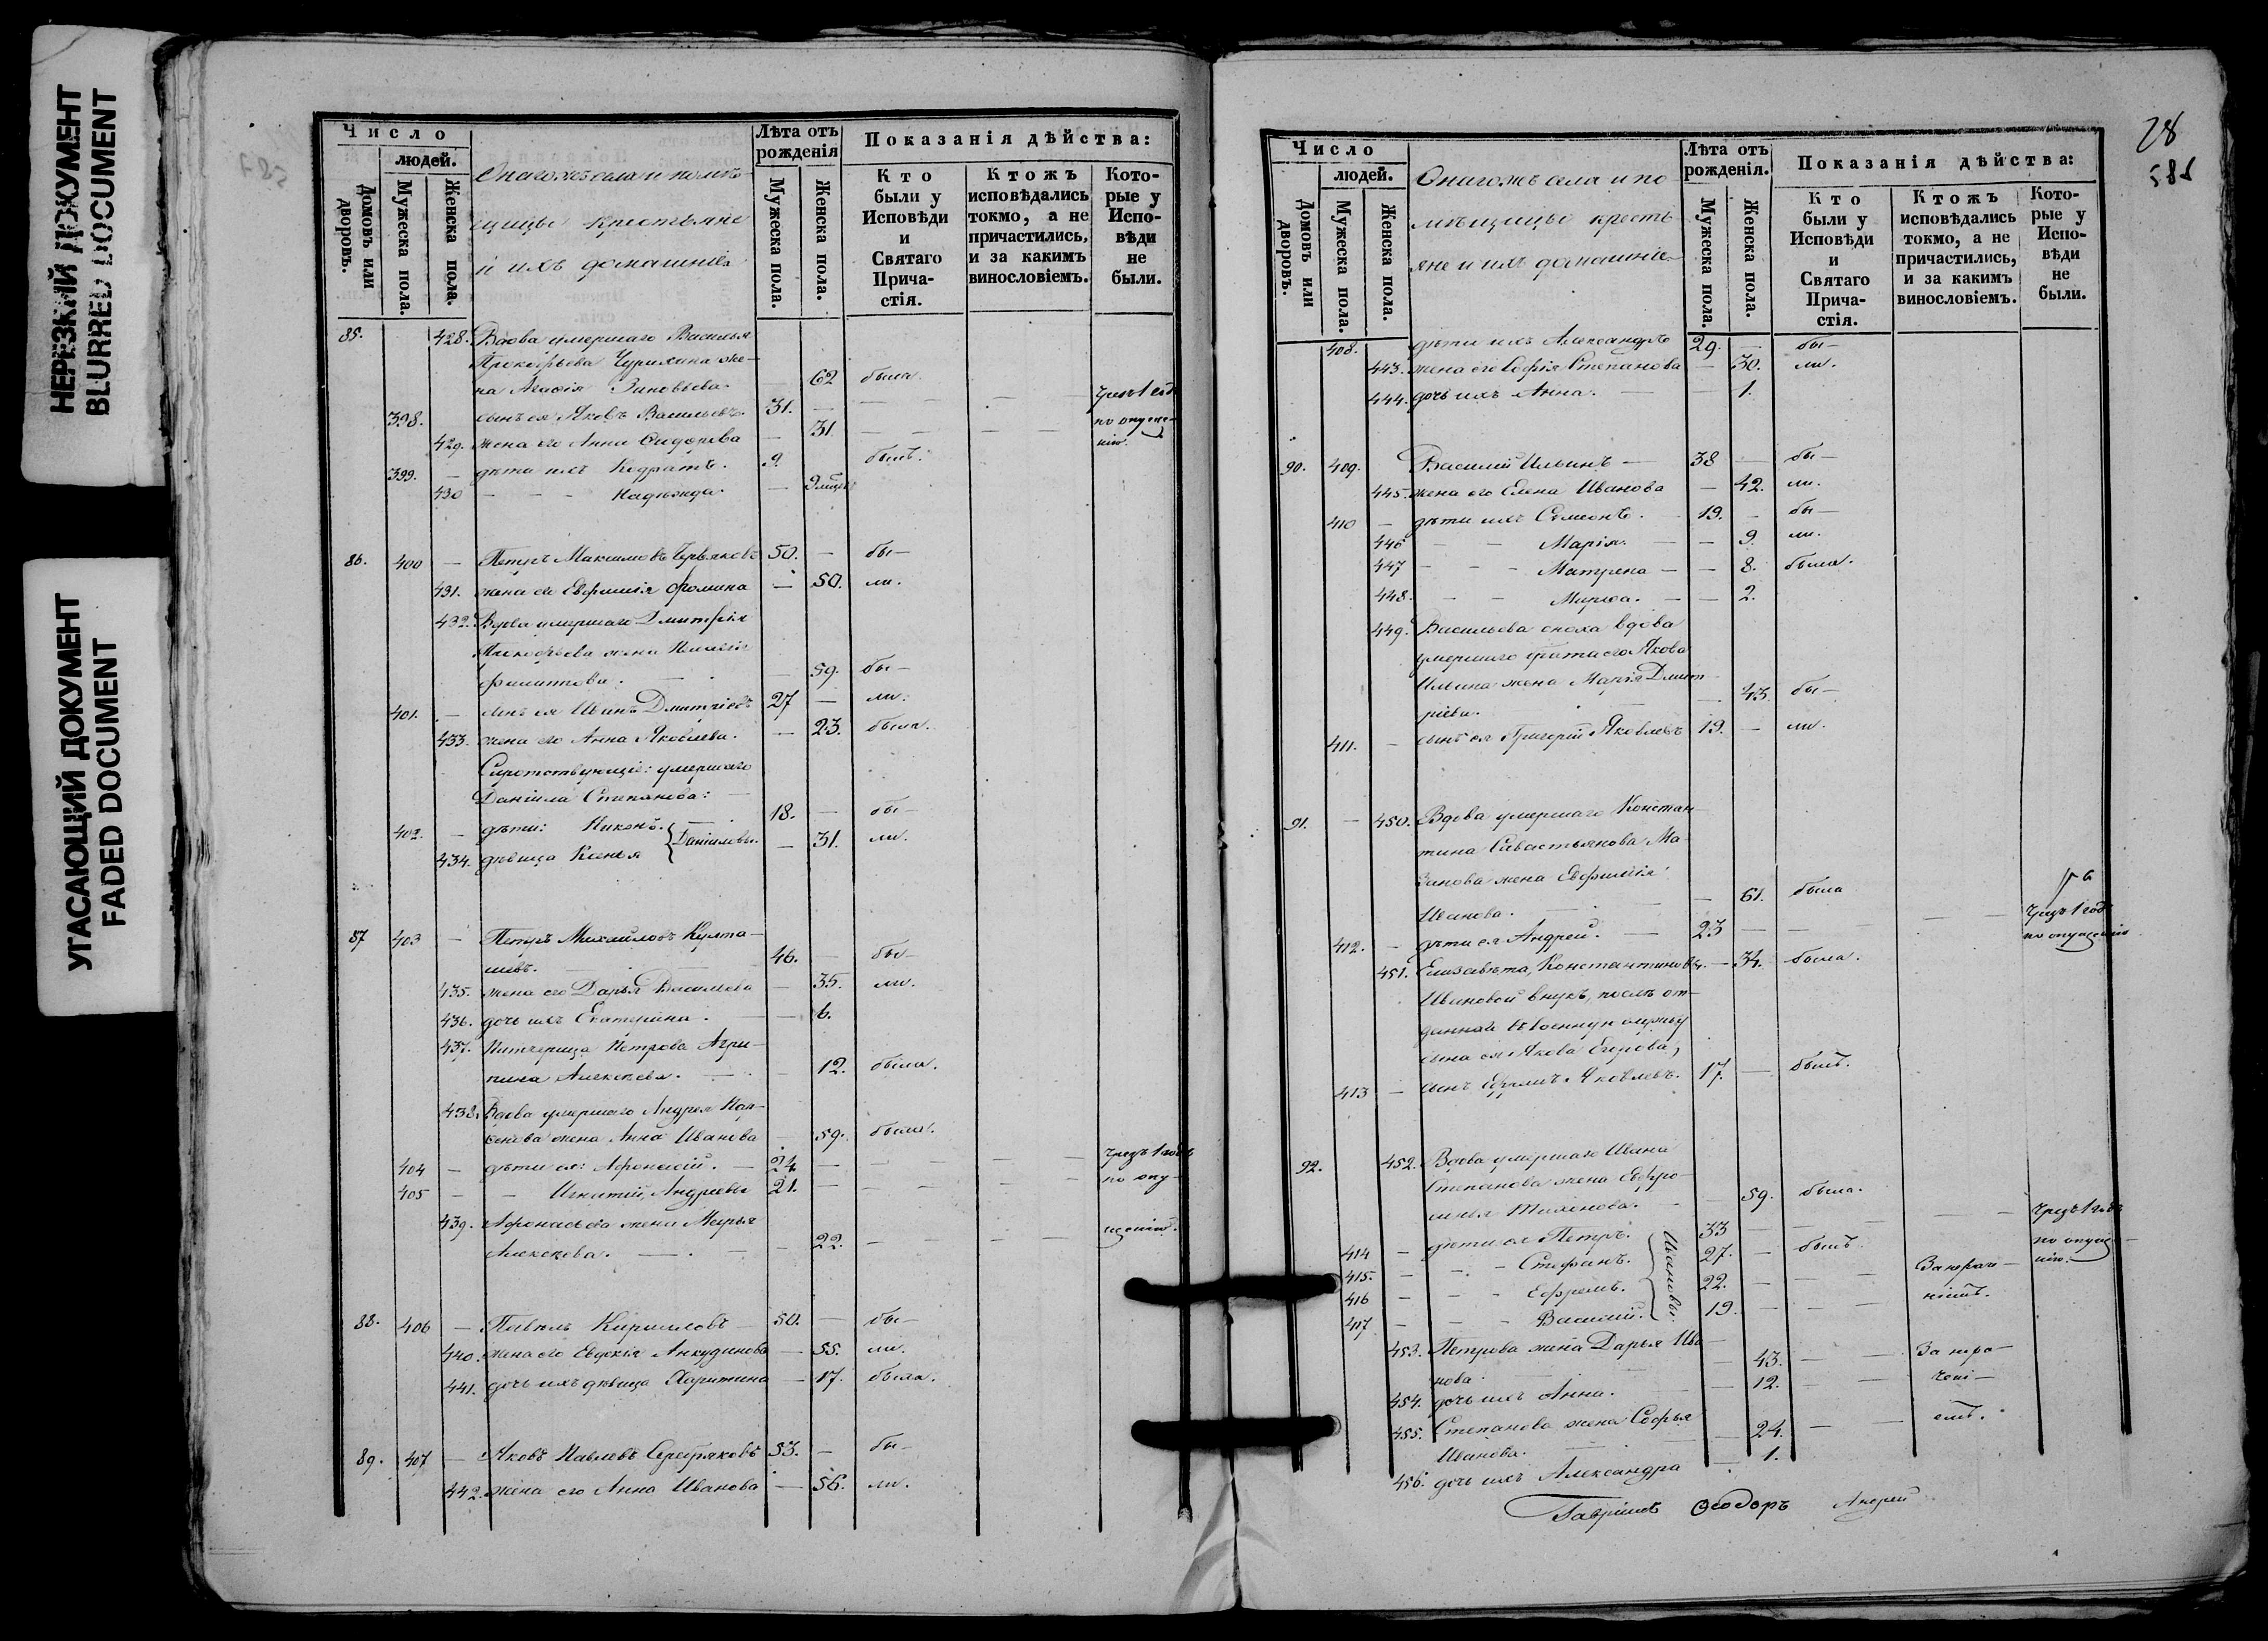 НЕРЕЗКИЙ ДОКУМЕНТ
BLURRED DOCUMENT
УГАСАЮЩИЙ ДОКУМЕНТ
FADED DOCUMENT
Число
людей.
Домовъ или дворовъ.
Мужеска пола.
Женска пола.
Онагожъ села и помѣ-
щицы крестьяне
и ихъ домашніе
Лѣта отъ рожденія
Мужеска пола.
Женска пола.
Показанія дѣйства:
Кто были у Исповѣди и Святаго Прича-стія.
Ктожъ исповѣдались токмо, а не причастились, и за какимъ винословіемъ.
Кото-рые у Испо-вѣди не были.
85. 428. Вдова умершаго Василья
Прокофьева Чурилина же-
на Агафія Зиновьева. 62 была.
398. сынъ ея Яковъ Васильевъ. 31. — чрезъ 1 годъ
429. жена его Анна Сидорова — 31. по опуще-
нію.
399. — дѣти ихъ Кодратъ. 9. былъ.
430 — Надежда. — 9 мцовъ
86. 400 — Петръ Максимовъ Червяковъ 50. — бы-
431. жена его Евфимія Фомина — 50. ли.
432. Вдова умершаго Дмитрія
жена Пелагія
Филипова. 59. бы-
401. — сынъ ея Иванъ Дмитріевъ 27 — ли.
433. жена его Анна Яковлева. — 23. была.
Сиротствующіе: умершаго
Даніила Степанова:
402. — дѣти: Никонъ. 18. — бы-
434. дѣвица Ксенья Даніиловы. — 31. ли.
87 403 — Петръ Михайловъ
46. — бы-
435. жена его Дарья Васильева — 35. ли.
436. дочь ихъ Екатерина. — 6.
437. Питчерица Петрова Агри-
пина Алексеева. — 12. была.
438. Вдова умершаго Андрея
жена Анна Иванова 59. была.
404 — дѣти ея: Афонасій. — 24 — чрезъ 1 годъ
405 — Игнатій, Андреевы 21. — по опу-
439. Афонасьева жена Марья
Алексеева. — 22. щенію.
88. 406 — Павелъ Кириловъ 50. — бы-
440. жена его Евдокія Анкудинова — 55. ли.
441. дочь ихъ дѣвица Харитина — 17. была.
89. 407 — Яковъ Павловъ Серебряковъ 53. — бы-
442. жена его Анна Иванова — 56. ли.
28
Число
людей.
Домовъ или дворовъ.
Мужеска пола.
Женска пола.
Онагожъ села и по
мѣщицы кресть
яне и ихъ домашніе
Лѣта отъ рожденія.
Мужеска пола.
Женска пола.
Показанія дѣйства:
Кто были у Исповѣди и Святаго Прича-стія.
Ктожъ исповѣдались токмо, а не причастились, и за какимъ винословіемъ.
Кото-рые у Испо-вѣди не были.
408. дѣти ихъ Александръ 29. — бы-
443. жена его Софія Степанова — 30. ли.
444. дочь ихъ Анна. — 1.
90. 409. Василій Ильинъ — 38 — бы-
445. жена его Елена Иванова — 42. ли.
410 — дѣти ихъ Семіонъ. 19. — бы-
446 — Марія. — 9. ли.
447 — Матрена — 8. была.
448. — Марфа. — 2.
449. Васильева сноха вдова
умершаго брата его Якова
Ильина жена Марія Дмит-
ріева. — 43 бы-
411. — сынъ ея Григорій Яковлевъ 19. — ли.
91. — 450. Вдова умершаго Констан-
тина Севастьянова Ма-
занова жена Евфимія
Иванова. — 61. была
412. — дѣти ея Андрей. — 23 — чрезъ 1 годъ
по опущенію
451. Елизавета, Константиновы. — 34. была.
Ивановой внукъ, послѣ от-
даннаго въ военную службу
сына ея Якова Егорова,
413 — сынъ Ефремъ Яковлевъ. 17. — былъ.
92. 452. Вдова умершаго Ивана
Степанова жена Евфро-
синья — 59. была.
414 — дѣти ея Петръ. 33 — чрезъ 1 годъ
415. — Стефанъ. 27. — былъ. по опуще-
нію.
416 — Ефремъ. 22. —
417 — Василій. 19. —
Ивановы.
453. Петрова жена Дарья Ива-
нова — 43.
454. дочь ихъ Анна. — 12.
455. Степанова жена Софья
Иванова. — 24.
456. дочь ихъ Александра — 1.
Ѳеодоръ Андрей